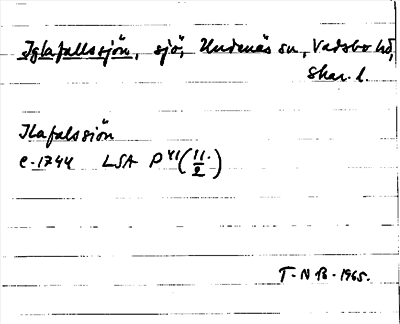 Iglafallssjön, sjö, Undenäs sn, Vadsbo hd,
Skar. l.
Ilafalssiön
c. 1744 LSA P 41 (11./2)
T-N B. 1965.